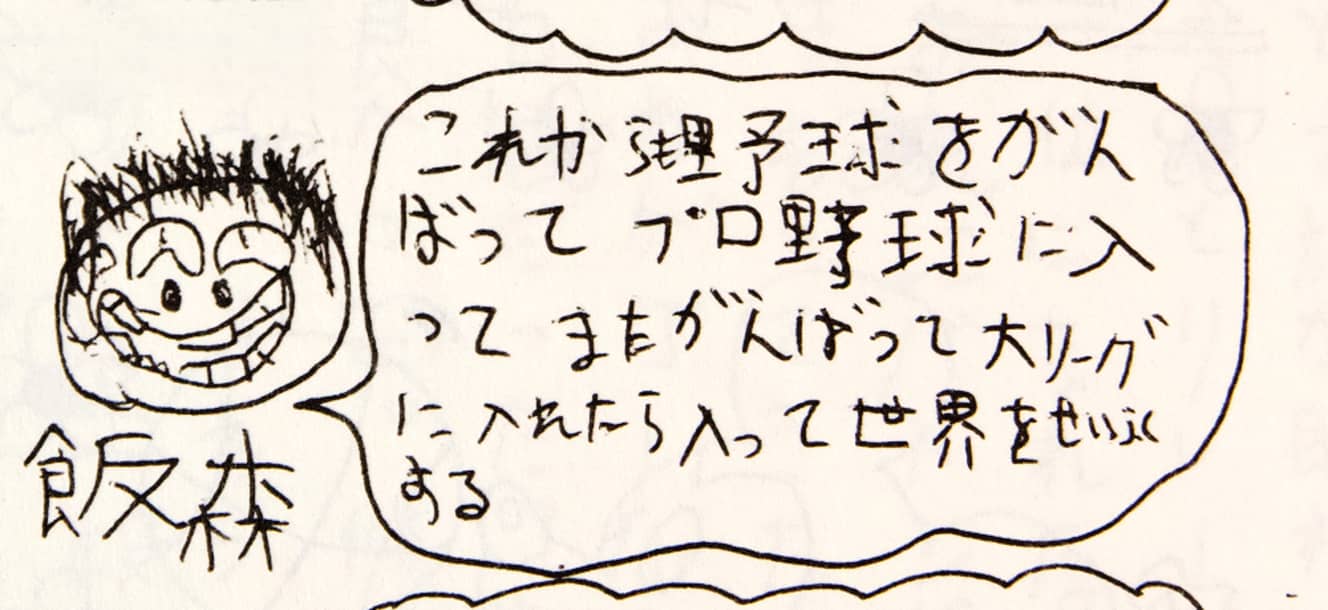 これから野球をがん
ばって プロ野球に入
って またがんばって大リーグ
に入れたら入って世界をせいふく
する
飯森